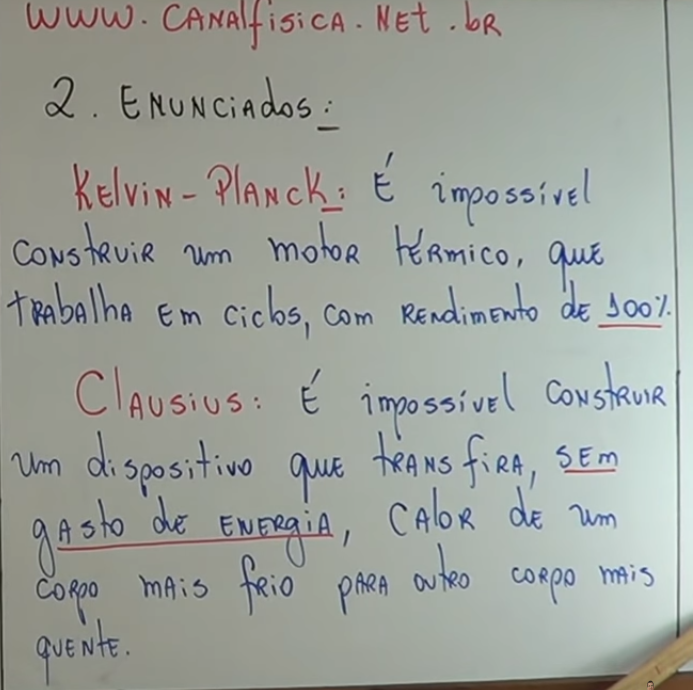 WWW.CANALfísicA.NEt.bR
2. ENUNCiAdos:
KELViN-PLANCK: É impossível
CONSTRUIR um motoR tÉRmico, quE
tRAbAlhA Em ciclos, com RENdimENto dE 100%.
CLAUSIUS: É impossívEl CONSTRUIR
um dispositivo quE tRANSfiRA, SEm
gAsto dE ENERgiA, CAloR dE um
CORPO mAis fRio PARA outRo CORPO mAis
quENtE.